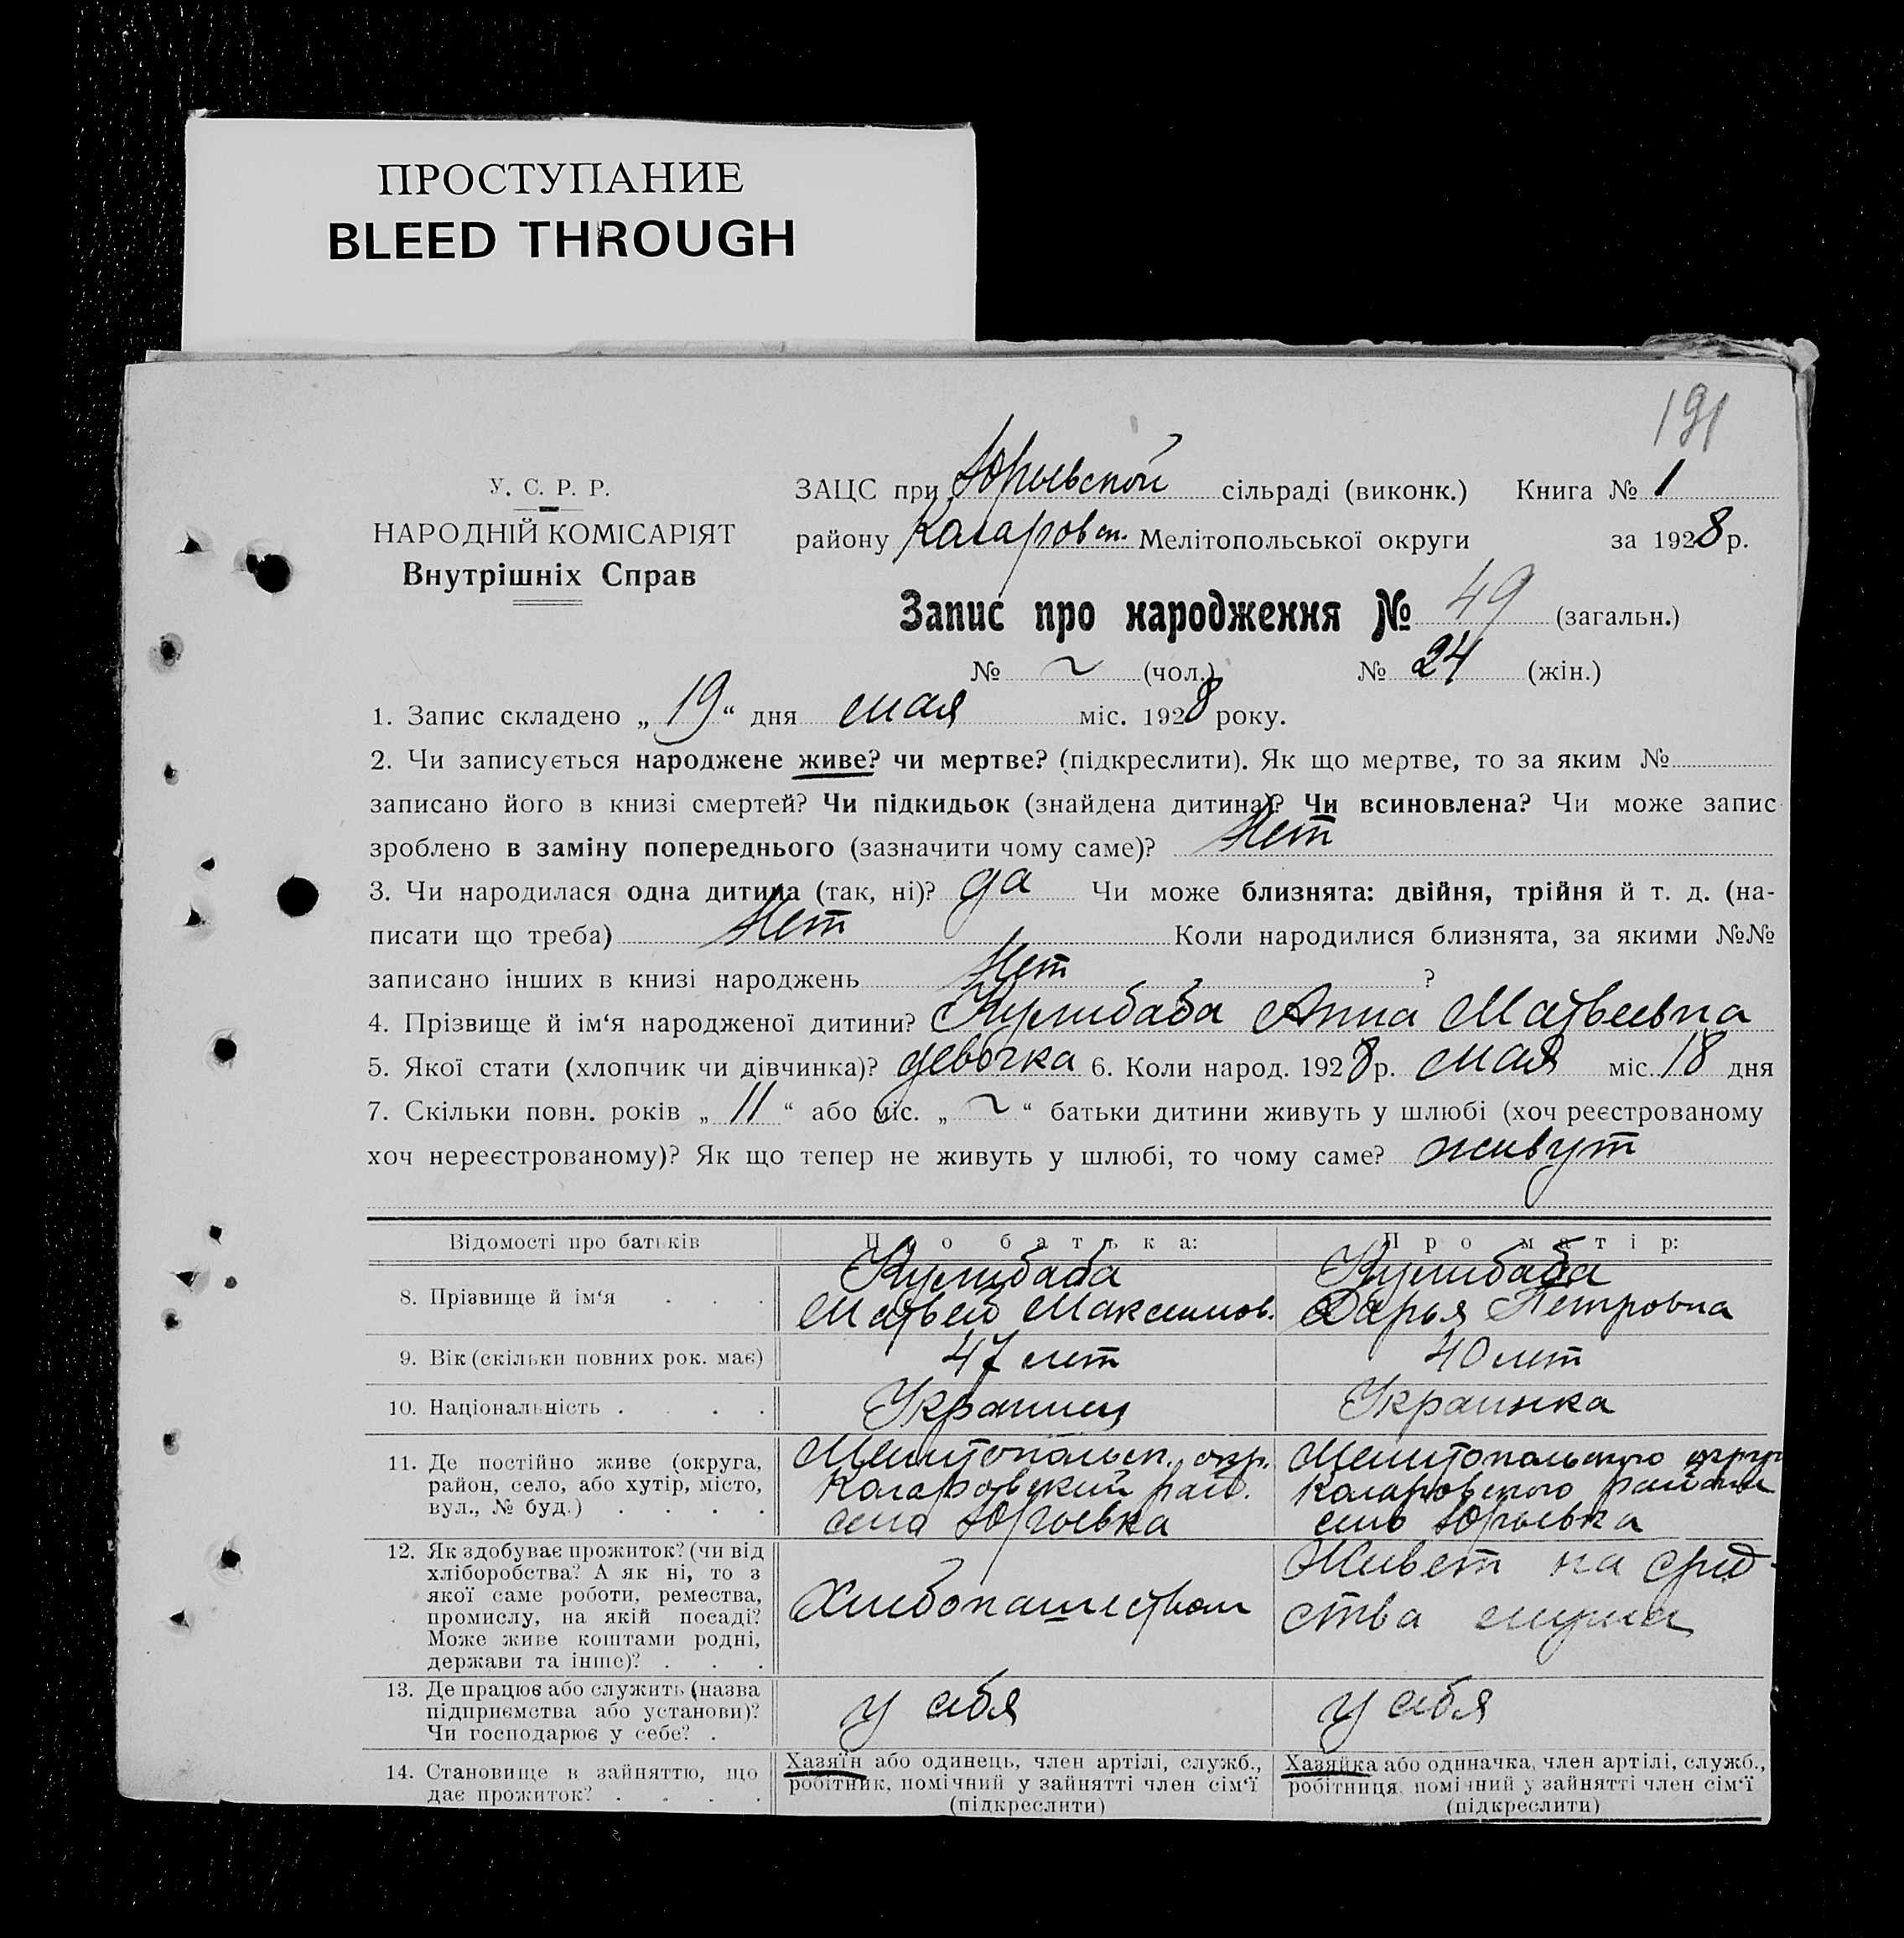 ПРОСТУПАНИЕ
BLEED THROUGH
191
У. С. Р. Р.
НАРОДНІЙ КОМІСАРІЯТ
Внутрішніх Справ
ЗАЦС при Юрьевской сільраді (виконк.) Книга № 1
району Коларовск. Мелітопольської округи за 1928 р.
Запис про народження № 49 (загальн.)
№ ~ (чол.) № 24 (жін.)
1. Запис складено „ 19 “ дня мая міс. 1928 року.
2. Чи записується народжене живе? чи мертве? (підкреслити). Як що мертве, то за яким №
записано його в книзі смертей? Чи підкидьок (знайдена дитина)? Чи всиновлена? Чи може запис
зроблено в заміну попереднього (зазначити чому саме)? Нет
3. Чи народилася одна дитина (так, ні)? да Чи може близнята: двійня, трійня й т. д. (на-
писати що треба) Нет Коли народилися близнята, за якими №№
записано інших в книзі народжень Нет ?
4. Прізвище й ім‘я народженої дитини? Кулибаба Анна Матвеевна
5. Якої стати (хлопчик чи дівчинка)? девочка 6. Коли народ. 1928 р. мая міс. 18 дня
7. Скільки повн. років „ 11 “ або міс. „ ~ “ батьки дитини живуть у шлюбі (хоч реєстрованому
хоч нереєстрованому)? Як що тепер не живуть у шлюбі, то чому саме? живут
Відомості про батьків Про батька: Про матір:
8. Прізвище й ім‘я Кулибаба Матвей Максимов. Кулибаба Дарья Петровна
9. Вік (скільки повних рок. має) 47 лет 40 лет
10. Національність Украинец Украинка
11. Де постійно живе (округа,
район, село, або хутір, місто,
вул., № буд.)
Мелитопольск. окр.
Коларовский рай.
село Юрьевка
Мелитопольского округ
Коларовского района
село Юрьевка
12. Як здобуває прожиток? (чи від
хліборобства? А як ні, то з
якої саме роботи, ремества,
промислу, на якій посаді?
Може живе коштами родні,
держави та інше)?
Хлебопашеством
Живет на сред-
ства мужа
13. Де працює або служить (назва
підприємства або установи)?
Чи господарює у себе?
у себя
у себя
14. Становище в зайняттю, що
дає прожиток?
Хазяїн або одинець, член артілі, служб.,
робітник, помічний у зайнятті член сім‘ї
(підкреслити)
Хазяйка або одиначка, член артілі, служб.,
робітниця, помічний у зайнятті член сім‘ї
(підкреслити)